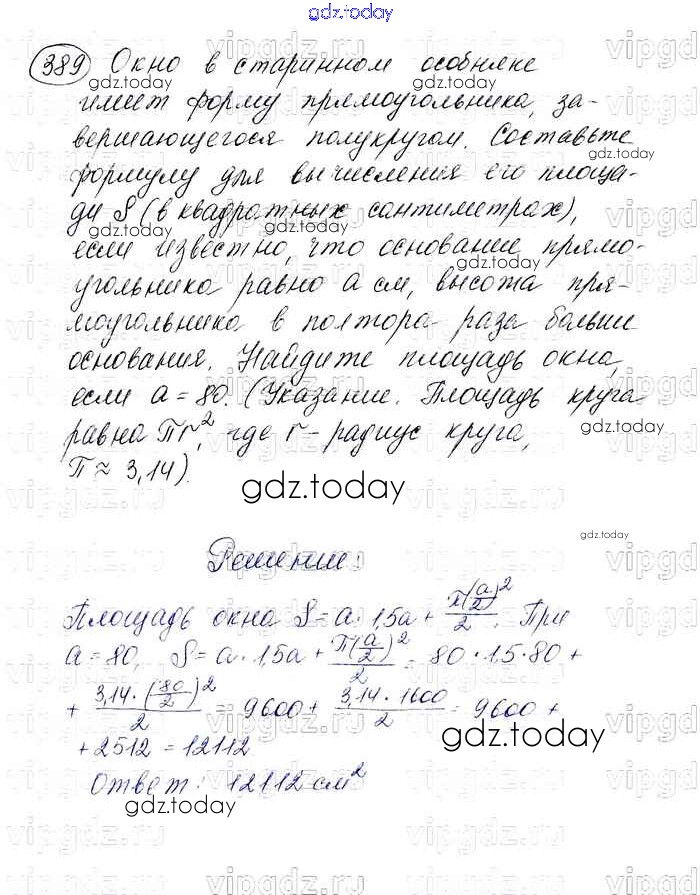 gdz.today
389 Окно в старинном особняке
имеет форму прямоугольника, за-
вершающегося полукругом. Составьте
формулу для вычисления его площа-
ди S (в квадратных сантиметрах),
если известно, что основание прямо-
угольника равно a см, высота пря-
моугольника в полтора раза больше
основания. Найдите площадь окна,
если a = 80. (Указание. Площадь круга
равна πr², где r - радиус круга,
π ≈ 3,14).
gdz.today
Решение:
Площадь окна S = a · 1,5a + π(a/2)²/2. При
a = 80, S = a · 1,5a + π(a/2)²/2 = 80 · 1,5 · 80 +
+ 3,14 · (80/2)²/2 = 9600 + 3,14 · 1600/2 = 9600 +
+ 2512 = 12112
gdz.today
Ответ: 12112 см²
gdz.today